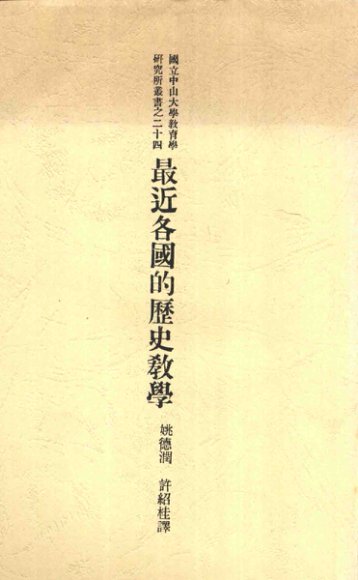 國立中山大學教育學
研究所叢書之二十四
最近各國的歷史教學
姚德潤 許紹桂譯